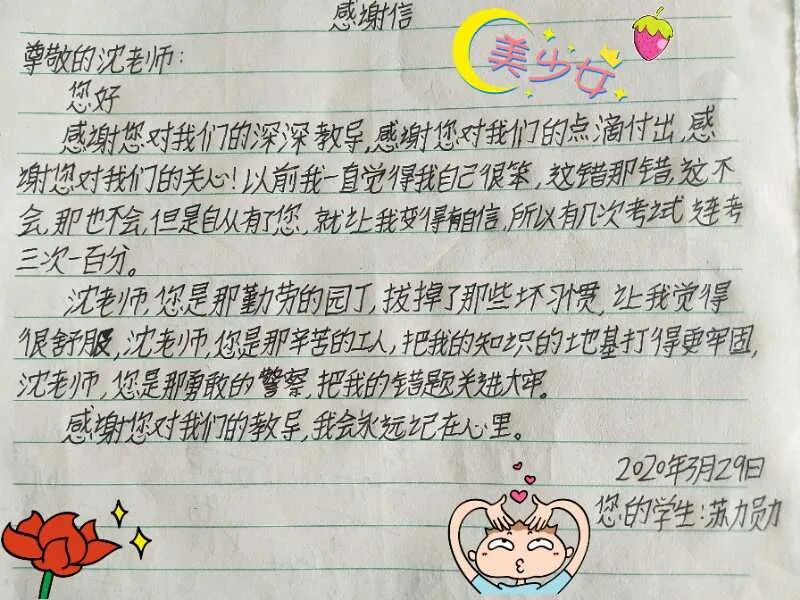 感谢信
美少女
尊敬的沈老师：
您好
感谢您对我们的深深教导,感谢您对我们的点滴付出,感
谢您对我们的关心!以前我一直觉得我自己很笨,这错那错,这不
会,那也不会,但是自从有了您,就让我变得有自信,所以有几次考试连考
三次一百分。
沈老师,您是那勤劳的园丁,拔掉了那些坏习惯,让我觉得
很舒服,沈老师,您是那辛苦的工人,把我的知识的地基打得更牢固,
沈老师,您是那勇敢的警察,把我的错题关进大牢。
感谢您对我们的教导,我会永远记在心里。
2020年3月29日
您的学生:苏力勋